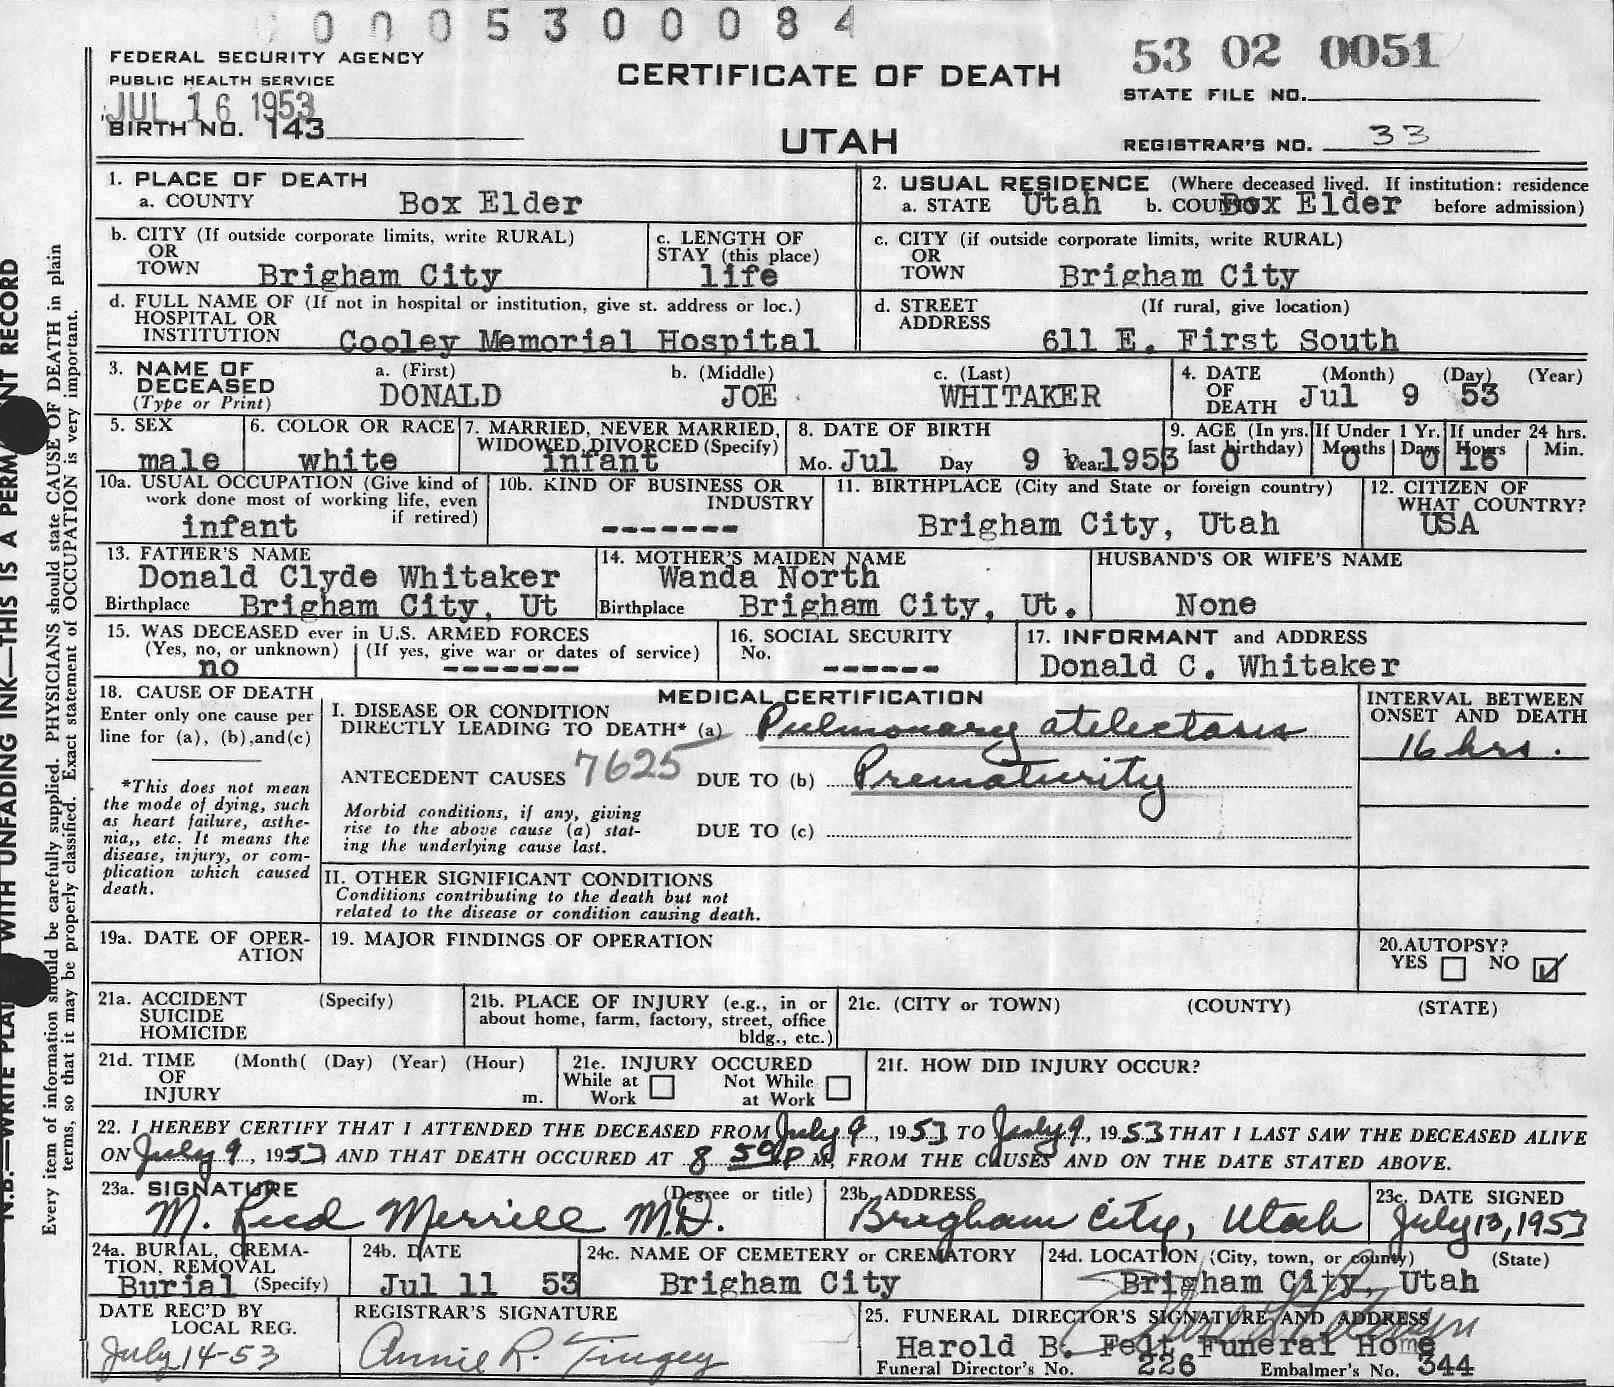 0 0 0 5 3 0 0 0 8 4
FEDERAL SECURITY AGENCY
PUBLIC HEALTH SERVICE
JUL 16 1953
BIRTH NO. 143
CERTIFICATE OF DEATH
UTAH
53 02 0051
STATE FILE NO.
REGISTRAR'S NO. 33
1. PLACE OF DEATH
a. COUNTY Box Elder
2. USUAL RESIDENCE (Where deceased lived. If institution: residence
a. STATE Utah b. COUNTY Box Elder before admission)
b. CITY (If outside corporate limits, write RURAL)
OR
TOWN Brigham City
c. LENGTH OF
STAY (this place)
life
c. CITY (if outside corporate limits, write RURAL)
OR
TOWN Brigham City
d. FULL NAME OF (If not in hospital or institution, give st. address or loc.)
HOSPITAL OR
INSTITUTION Cooley Memorial Hospital
d. STREET (If rural, give location)
ADDRESS
611 E. First South
3. NAME OF a. (First) b. (Middle) c. (Last)
DECEASED DONALD JOE WHITAKER
(Type or Print)
4. DATE (Month) (Day) (Year)
OF
DEATH Jul 9 53
5. SEX
male
6. COLOR OR RACE
white
7. MARRIED, NEVER MARRIED,
WIDOWED, DIVORCED (Specify)
infant
8. DATE OF BIRTH
Mo. Jul Day 9 Year 1953
9. AGE (In yrs.
last birthday) 0
If Under 1 Yr.
Months 0 Days 0
If under 24 hrs.
Hours 16 Min.
10a. USUAL OCCUPATION (Give kind of
work done most of working life, even
infant if retired)
10b. KIND OF BUSINESS OR
INDUSTRY
-------
11. BIRTHPLACE (City and State or foreign country)
Brigham City, Utah
12. CITIZEN OF
WHAT COUNTRY?
USA
13. FATHER'S NAME
Donald Clyde Whitaker
Birthplace Brigham City, Ut
14. MOTHER'S MAIDEN NAME
Wanda North
Birthplace Brigham City, Ut.
HUSBAND'S OR WIFE'S NAME
None
15. WAS DECEASED ever in U.S. ARMED FORCES
(Yes, no, or unknown) (If yes, give war or dates of service)
no -------
16. SOCIAL SECURITY
No.
------
17. INFORMANT and ADDRESS
Donald C. Whitaker
18. CAUSE OF DEATH
Enter only one cause per
line for (a), (b),and(c)
*This does not mean
the mode of dying, such
as heart failure, asthe-
nia,, etc. It means the
disease, injury, or com-
plication which caused
death.
MEDICAL CERTIFICATION
I. DISEASE OR CONDITION
DIRECTLY LEADING TO DEATH* (a) Pulmonary atelectasis
ANTECEDENT CAUSES 7625 DUE TO (b) Prematurity
Morbid conditions, if any, giving
rise to the above cause (a) stat-
ing the underlying cause last.
DUE TO (c)
II. OTHER SIGNIFICANT CONDITIONS
Conditions contributing to the death but not
related to the disease or condition causing death.
INTERVAL BETWEEN
ONSET AND DEATH
16 hrs.
19a. DATE OF OPER-
ATION
19. MAJOR FINDINGS OF OPERATION
20.AUTOPSY?
YES NO ✓
21a. ACCIDENT (Specify)
SUICIDE
HOMICIDE
21b. PLACE OF INJURY (e.g., in or
about home, farm, factory, street, office
bldg., etc.)
21c. (CITY or TOWN) (COUNTY) (STATE)
21d. TIME (Month( (Day) (Year) (Hour)
OF
INJURY m.
21e. INJURY OCCURED
While at Not While
Work at Work
21f. HOW DID INJURY OCCUR?
22. I HEREBY CERTIFY THAT I ATTENDED THE DECEASED FROM July 9, 1953 TO July 9, 1953 THAT I LAST SAW THE DECEASED ALIVE
ON July 9, 1953 AND THAT DEATH OCCURED AT 8 59 P M, FROM THE CAUSES AND ON THE DATE STATED ABOVE.
23a. SIGNATURE (Degree or title)
M. Reed Merrill M.D.
23b. ADDRESS
Brigham City, Utah
23c. DATE SIGNED
July 13, 1953
24a. BURIAL, CREMA-
TION, REMOVAL
Burial (Specify)
24b. DATE
Jul 11 53
24c. NAME OF CEMETERY or CREMATORY
Brigham City
24d. LOCATION (City, town, or county) (State)
Brigham City, Utah
DATE REC'D BY
LOCAL REG.
July 14-53
REGISTRAR'S SIGNATURE
Annie R. Tingey
25. FUNERAL DIRECTOR'S SIGNATURE AND ADDRESS
Harold B. Felt Funeral Home
Funeral Director's No. 226 Embalmer's No. 344
N.B.—WRITE PLAI WITH UNFADING INK—THIS IS A PERMA NT RECORD
Every item of information should be carefully supplied. PHYSICIANS should state CAUSE OF DEATH in plain
terms, so that it may be properly classified. Exact statement of OCCUPATION is very important.